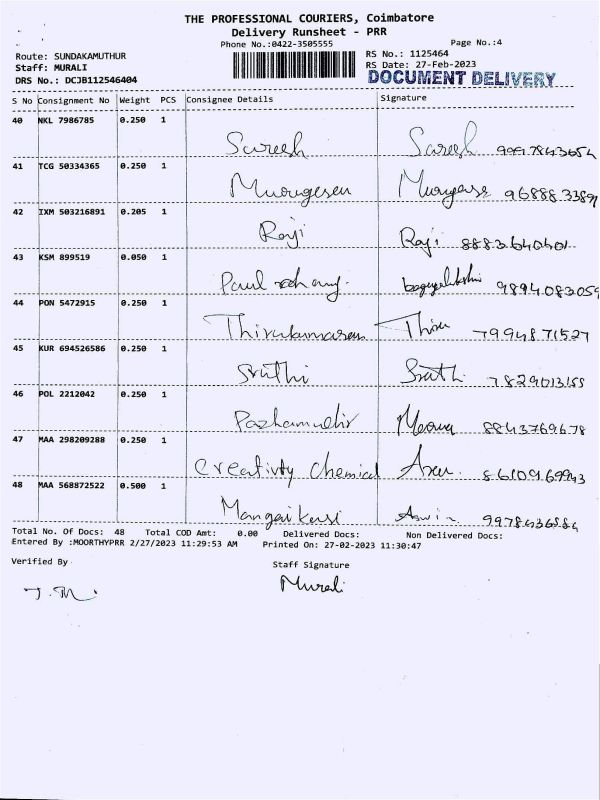 THE PROFESSIONAL COURIERS, Coimbatore
Delivery Runsheet - PRR
Phone No.:0422-3505555
Page No.:4
Route: SUNDAKAMUTHUR
RS No.: 1125464
Staff: MURALI
RS Date: 27-Feb-2023
DRS No.: DCJB112546404
DOCUMENT DELIVERY
S No Consignment No Weight PCS Consignee Details Signature
40 NKL 7986785 0.250 1
Suresh Suresh
41 TCG 50334365 0.250 1
Murugesen 9688833891
42 IXM 503216891 0.205 1
Raji Raji 8883640401
43 KSM 899519 0.050 1
Paul 9894083059
44 PON 5472915 0.250 1
Thirukumaran Thiru 7994871527
45 KUR 694526586 0.250 1
Sruthi Sruthi 7829013155
46 POL 2212042 0.250 1
Pazhamudhir Meena 8843769678
47 MAA 298209288 0.250 1
Creativity Chemical Arun 8610969943
48 MAA 568872522 0.500 1
Aswin 9978436584
Total No. Of Docs: 48 Total COD Amt: 0.00 Delivered Docs: Non Delivered Docs:
Entered By :MOORTHYPRR 2/27/2023 11:29:53 AM Printed On: 27-02-2023 11:30:47
Verified By
Staff Signature
Murali